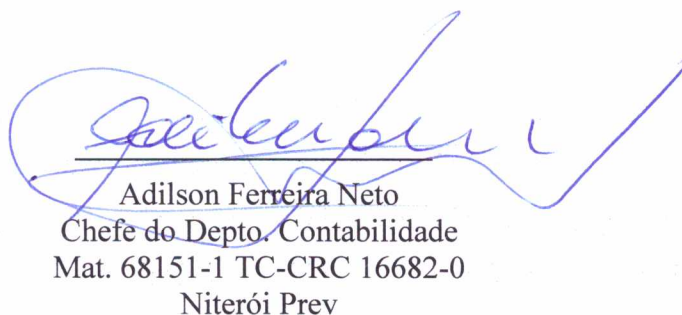 Adilson Ferreira Neto
Chefe do Depto. Contabilidade
Mat. 68151-1 TC-CRC 16682-0
Niterói Prev